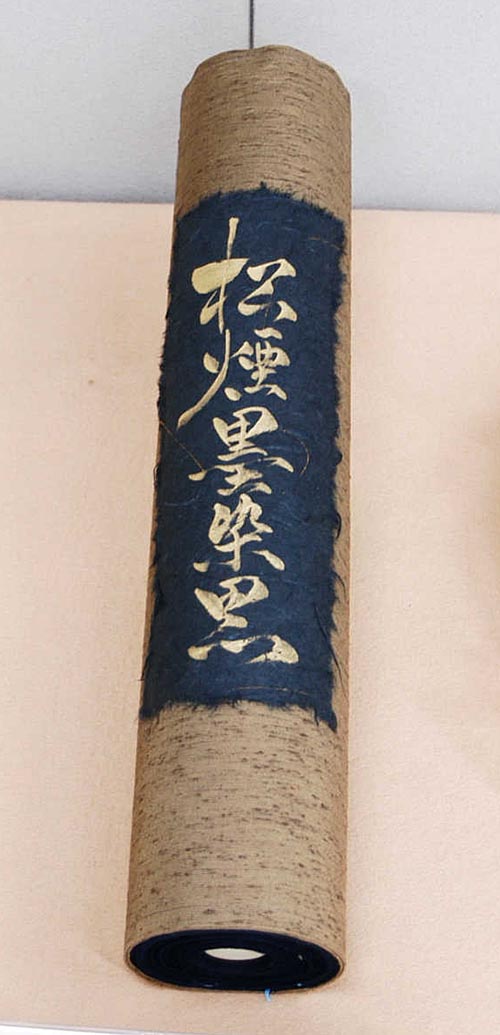 松煙墨染黒